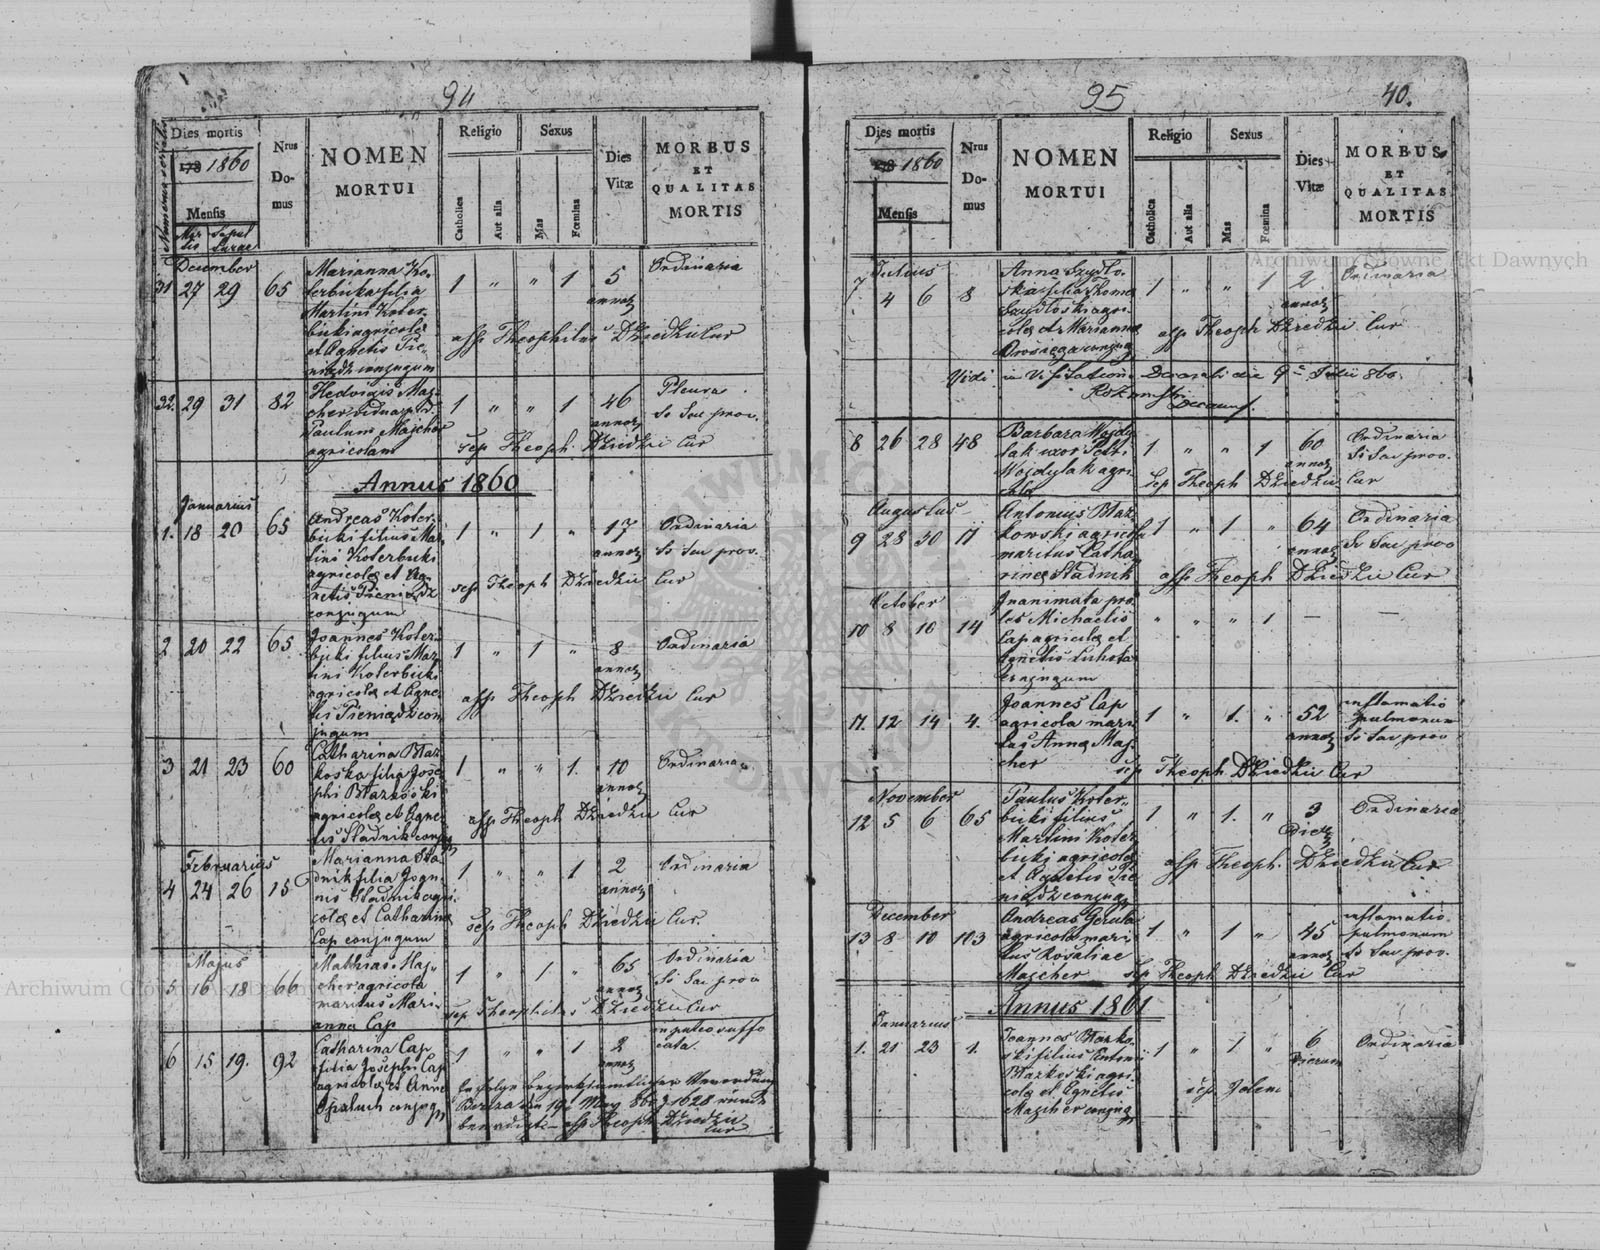 94
Numerus serialis
Dies mortis
1860
Mensis
Mortis Sepulturae
Nrus Domus
NOMEN
MORTUI
Religio
Catholica
Aut alia
Sexus
Mas
Fœmina
Dies Vitæ
MORBUS
ET
QUALITAS
MORTIS
December
31 27 29 65
Marianna Ko-
terbicka filia
Martini Koter-
bicki agricolae
et Agnetis Pie-
niądz conjugum
1 " " 1 5 annor
Ordinaria
assp Theophilus Dziedzic Cur
32. 29 31 82
Hedvigis Maj-
cher vidua post
Paulum Majcher
agricolam
1 " " 1 46 annor
Pleura
So Sac prov.
sep Theoph. Dziedzic Cur
Annus 1860
Januarius
1. 18 20 65
Andreas Koter-
bicki filius Mar-
tini Koterbicki
agricolae et Ag-
netis Pieniądz
conjugum
1 " 1 " 17 annor
Ordinaria
So Sac prov.
sep Theoph Dziedzic Cur
2 20 22 65
Joannes Koter-
bicki filius Mar-
tini Koterbicki
agricolae et Agne-
tis Pieniądz con-
jugum
1 " 1 " 8 annor
Ordinaria
assp Theoph Dziedzic Cur
3 21 23 60
Catharina Błaz-
koska filia Jose-
phi Błazkoski
agricolae et Agne-
tis Stadnik conjug
1 " " 1. 10 annor
Ordinaria
assp Theoph Dziedzic Cur
Februarius
4 24 26 15
Marianna Sta-
dnik filia Joan-
nis Stadnik agri-
colae et Catharina
Cap conjugum
1 " " 1 2 annor
Ordinaria
sep Theoph Dziedzic Cur.
Majus
5 16 18 66
Mathias Maj-
cher agricola
maritus Mari-
anna Cap
1 " 1 " 65 annor
Ordinaria
So Sac prov
sep Theophilus Dziedzic Cur
6 15 19. 92
Catharina Cap
filia Josephi Cap
agricolae et Anna
Opaluch conjug
1 " " 1 2 annor
in puteo suffo
cata.
Zufolge bezirksamtlicher Verordnung
19. May 860 1628 wurde
beerdigt - assp Theoph Dziedzic
Cur
95
40.
Dies mortis
1860
Mensis
Nrus Domus
NOMEN
MORTUI
Religio
Catholica
Aut alia
Sexus
Mas
Fœmina
Dies Vitæ
MORBUS
ET
QUALITAS
MORTIS
Julius
7 4 6 8
Anna Szydło-
ska filia Thoma
Szydłoski agri-
colae et Marianna
conjug
1 " " 1 2 annor
Ordinaria
assp Theoph Dziedzic Cur
Vidi in Visitatione Decanali die 9 Julii 860.
Decanus.
8 26 28 48
Barbara Wojdy-
lak uxor Petri
Wojdylak agri-
cola
1 " " 1 60 annor
Ordinaria
So Sac prov.
Sep Theoph Dziedzic Cur
Augustus
9 28 30 11
Antonius Błaz-
kowski agricola
maritus Catha-
rinae Stadnik
1 " 1 " 64 annor
Ordinaria
So Sac prov
assp Theoph Dziedzic Cur
October
10 8 10 14
Inanimata pro-
les Michaelis
Cap agricolae et
Agnetis
conjugum
" " " 1 — —
11. 12 14 4.
Joannes Cap
agricola mari-
tus Anna Maj-
cher
1 " 1. " 52 annor
inflamatio
pulmonum
So Sac prov
sep Theoph Dziedzic Cur
November
12 5 6 65
Paulus Koter-
bicki filius
Martini Koter-
bicki agricolae
et Agnetis Pie-
niądz conjug
1 " 1. " 3 Dier
Ordinaria
assp Theoph. Dziedzic Cur
December
13 8 10 103
Andreas Gerula
agricola mari-
tus Rosaliae
Majcher
1 " 1 " 45 annor
inflamatio
pulmonum
So Sac prov.
Sep Theoph Dziedzic Cur
Annus 1861
Januarius
1. 21 23 1.
Joannes Błazko-
ski filius Antoni
Błazkoski agri-
colae et Agnetis
Majcher conjug
1 " 1 " 6 Dierum
Ordinaria
sep Idem
Archiwum Główne Akt Dawnych
Archiwum Główne Akt Dawnych
ARCHIWUM GŁÓWNE AKT DAWNYCH